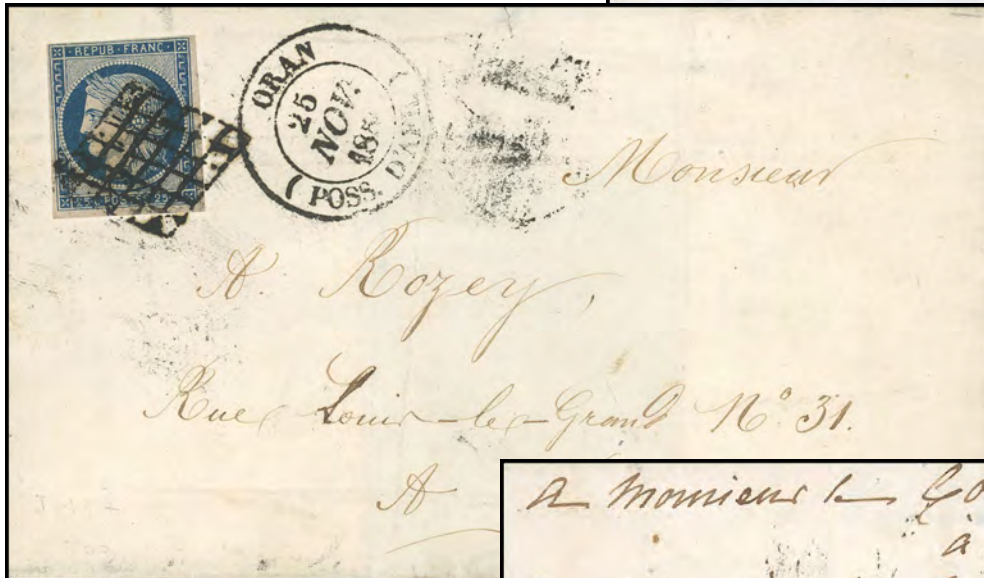 REPUB·FRANC·
25 POSTES 25
ORAN
25
NOV.
185
(POSS. D'AFR
Monsieur
A. Rozey,
Rue Louis-le-Grand N° 31.
A
a Monsieur le
à